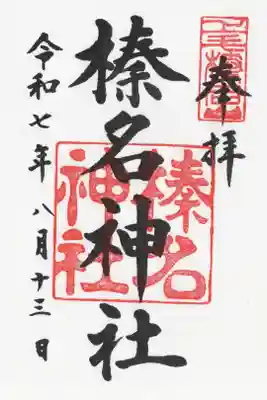 奉拝
榛名神社
榛名
神社
令和七年八月十三日